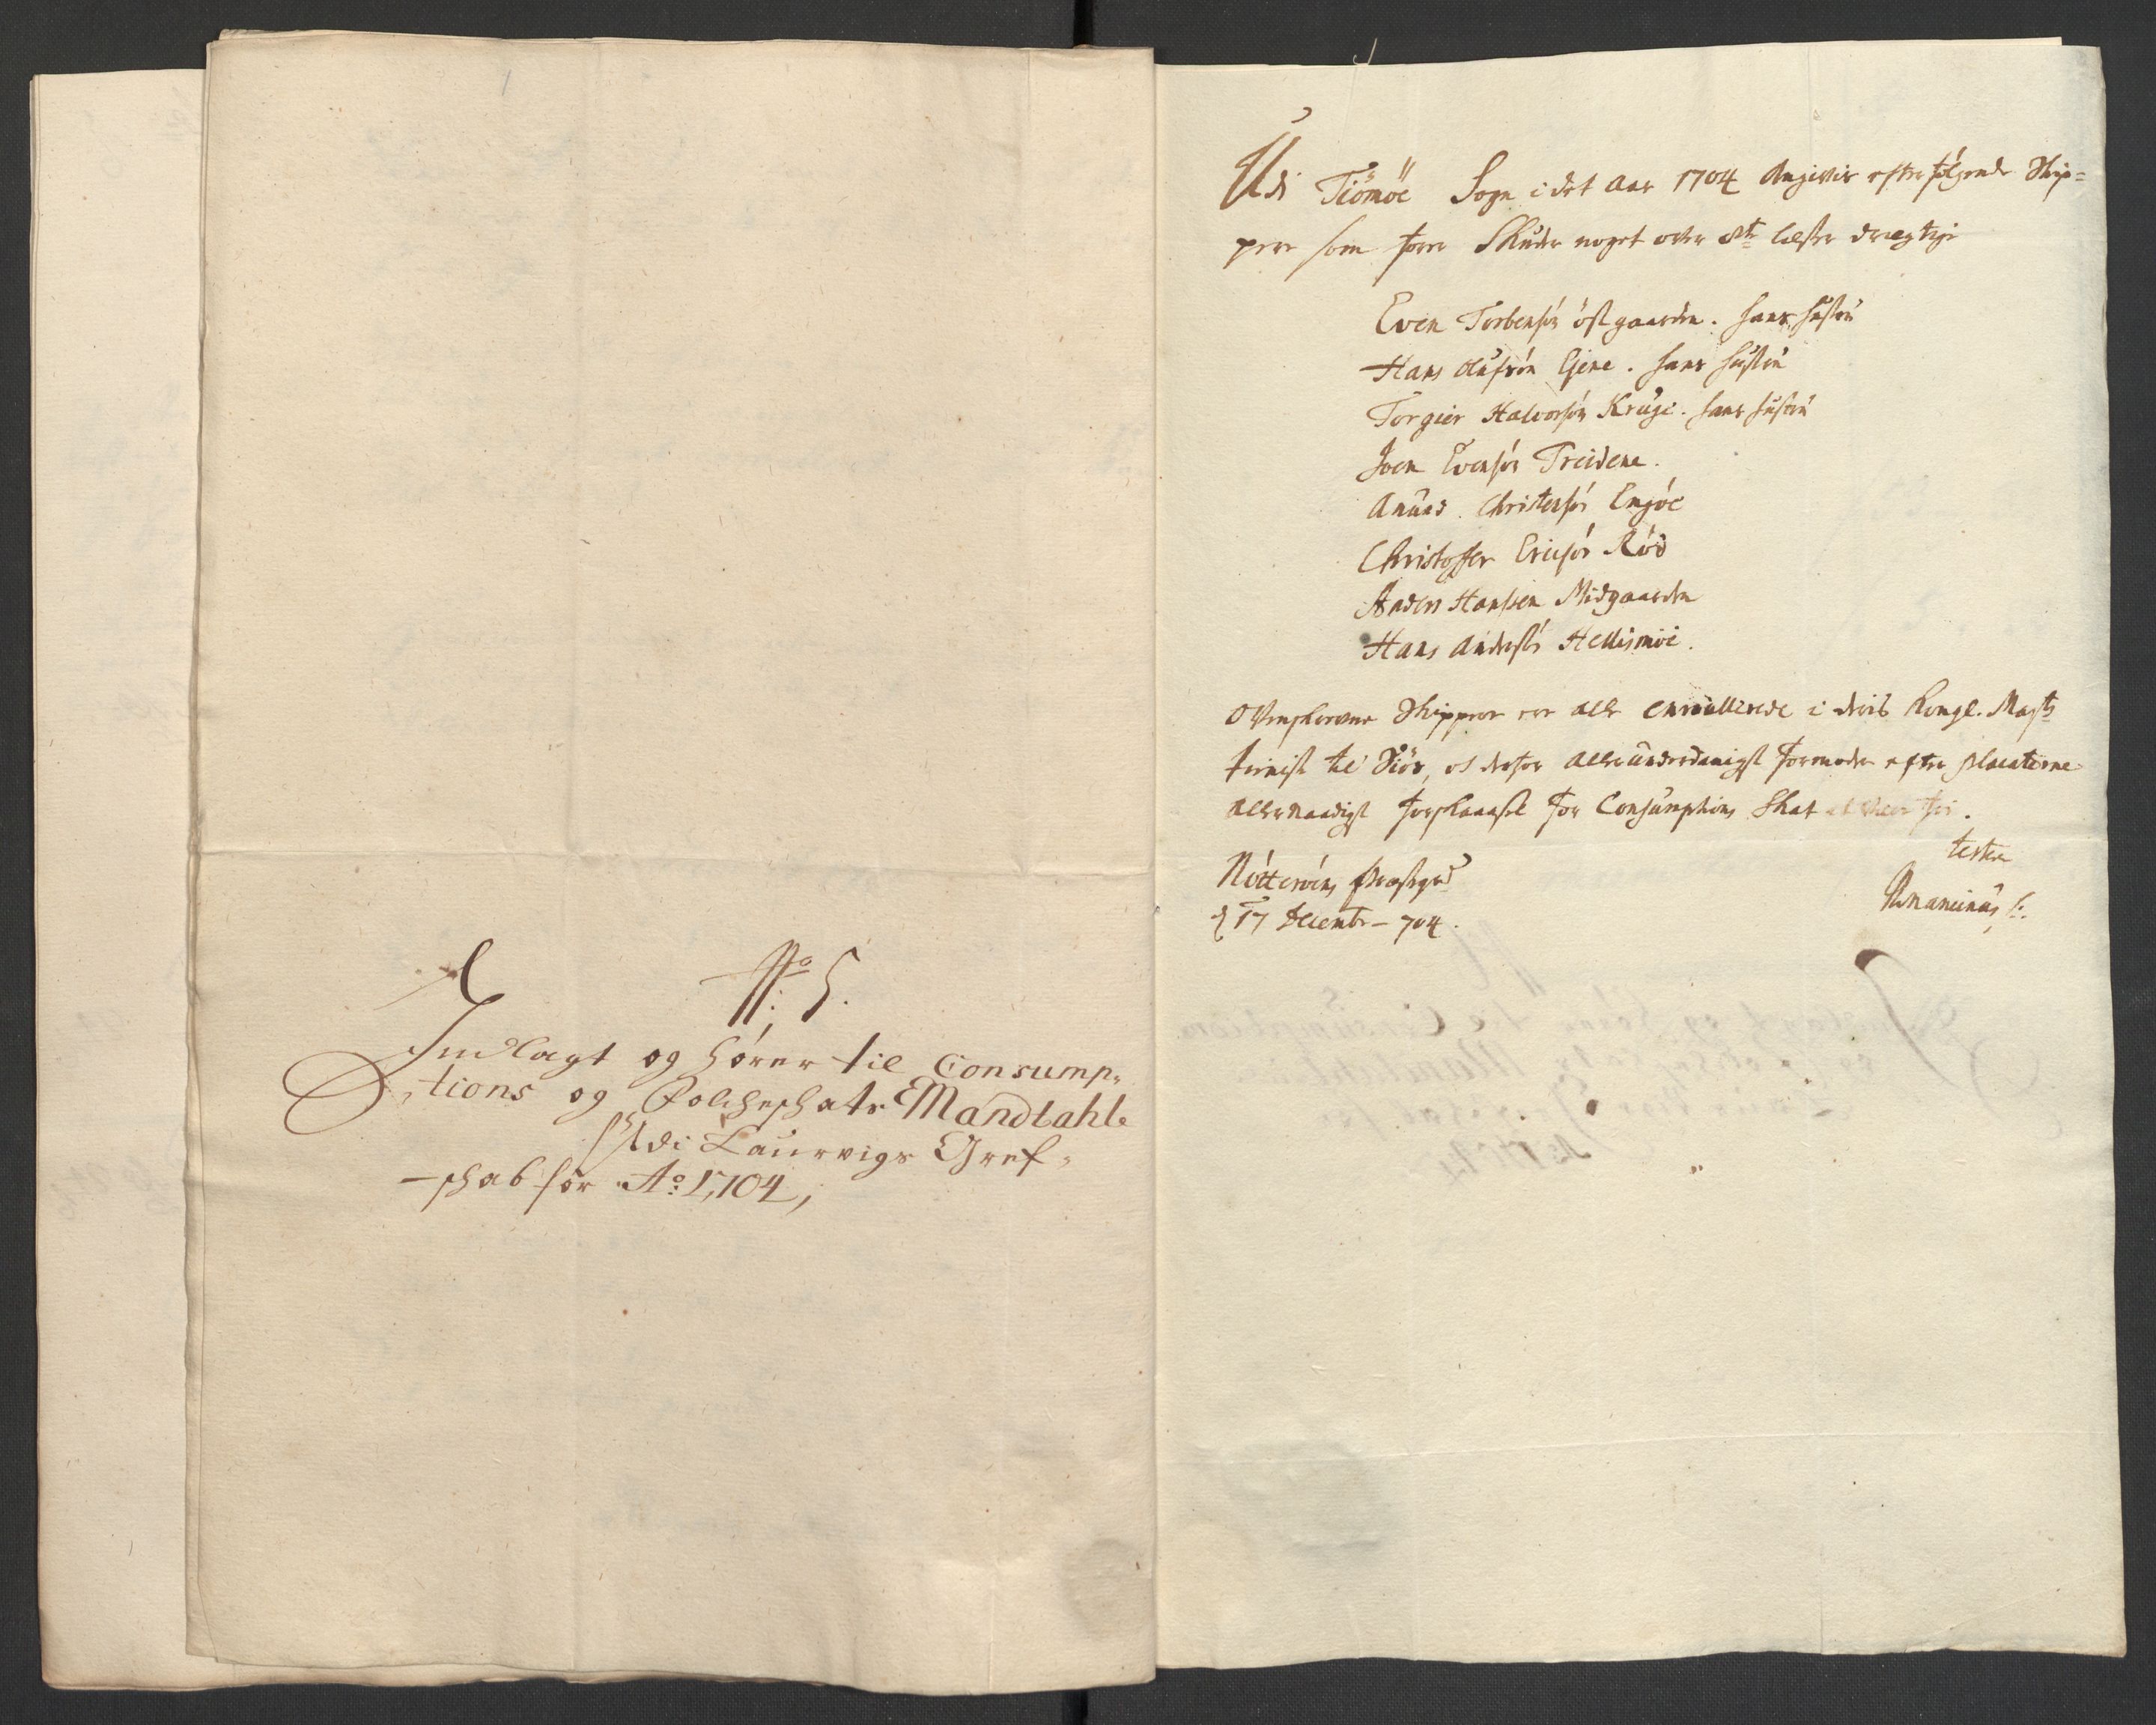 No 5.
Indlagt og hörer til Consump-
tions og Folcheschats Mandtahle
Udi Laurvigs Gref-
schab for Ao 1704,
Udi Tiömöe Sogn i det Aar 1704 Angivis efterfölgende Skip-
pere som förer Skuder noget over 8te læster drægtige
Even Torbensön östgaarden. hans hustru
Hans Olufsön Gjene. hans hustru
Torgier Halvorsön Kruge. hans hustru
Joen Evensön Treidene.
Anund Christensön Engöe
Christoffer Ericsön Röd
Anders Hanssen Midgaarden
Hans Andersön Hellismöe.
Ovenskrevne Skippere ere alle enroullerede i deris Kongl. Maysts
tieniste til Siös, og derfor allerunderdanigst formoder efter placaterne
allernaadigst forskaanst for Consumptions Skat at være fri.
Nötteröens Præstegrd
d 17 Decembr - 704.
tester